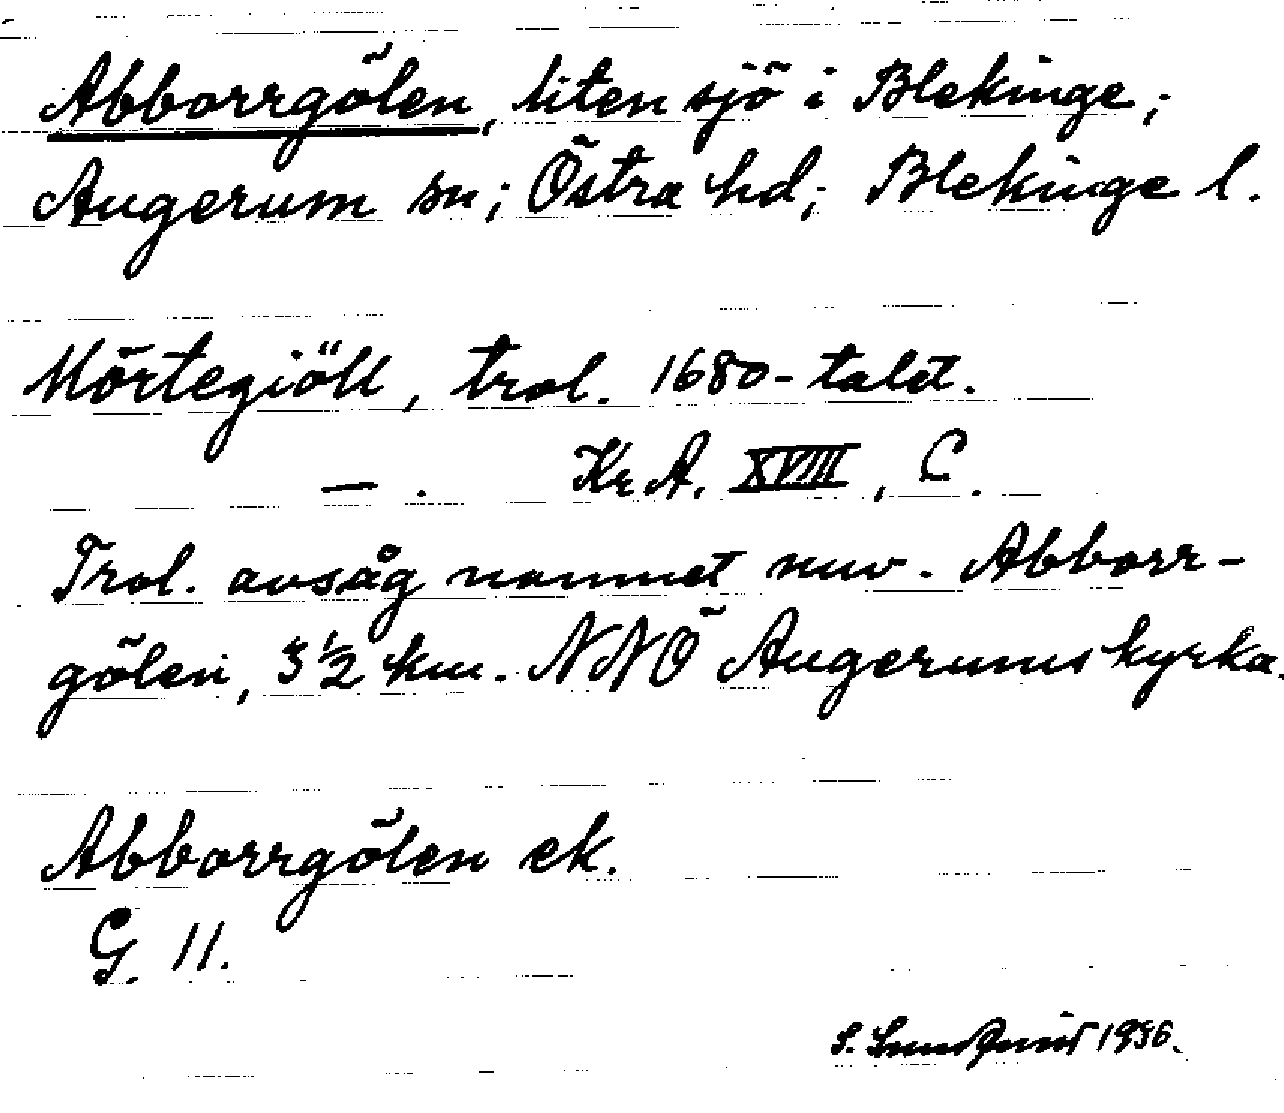 Abborrgölen, liten sjö i Blekinge;
Augerum sn; Östra hd; Blekinge l.
Mörtegiöll, trol. 1680-talet.
— . KrA. XVIII, C.
Trol. avsåg namnet nuv. Abborr-
gölen, 3 ½ km. NNÖ Augerums kyrka.
Abborrgölen ek.
G. 11.
S. Lundquist 1936.